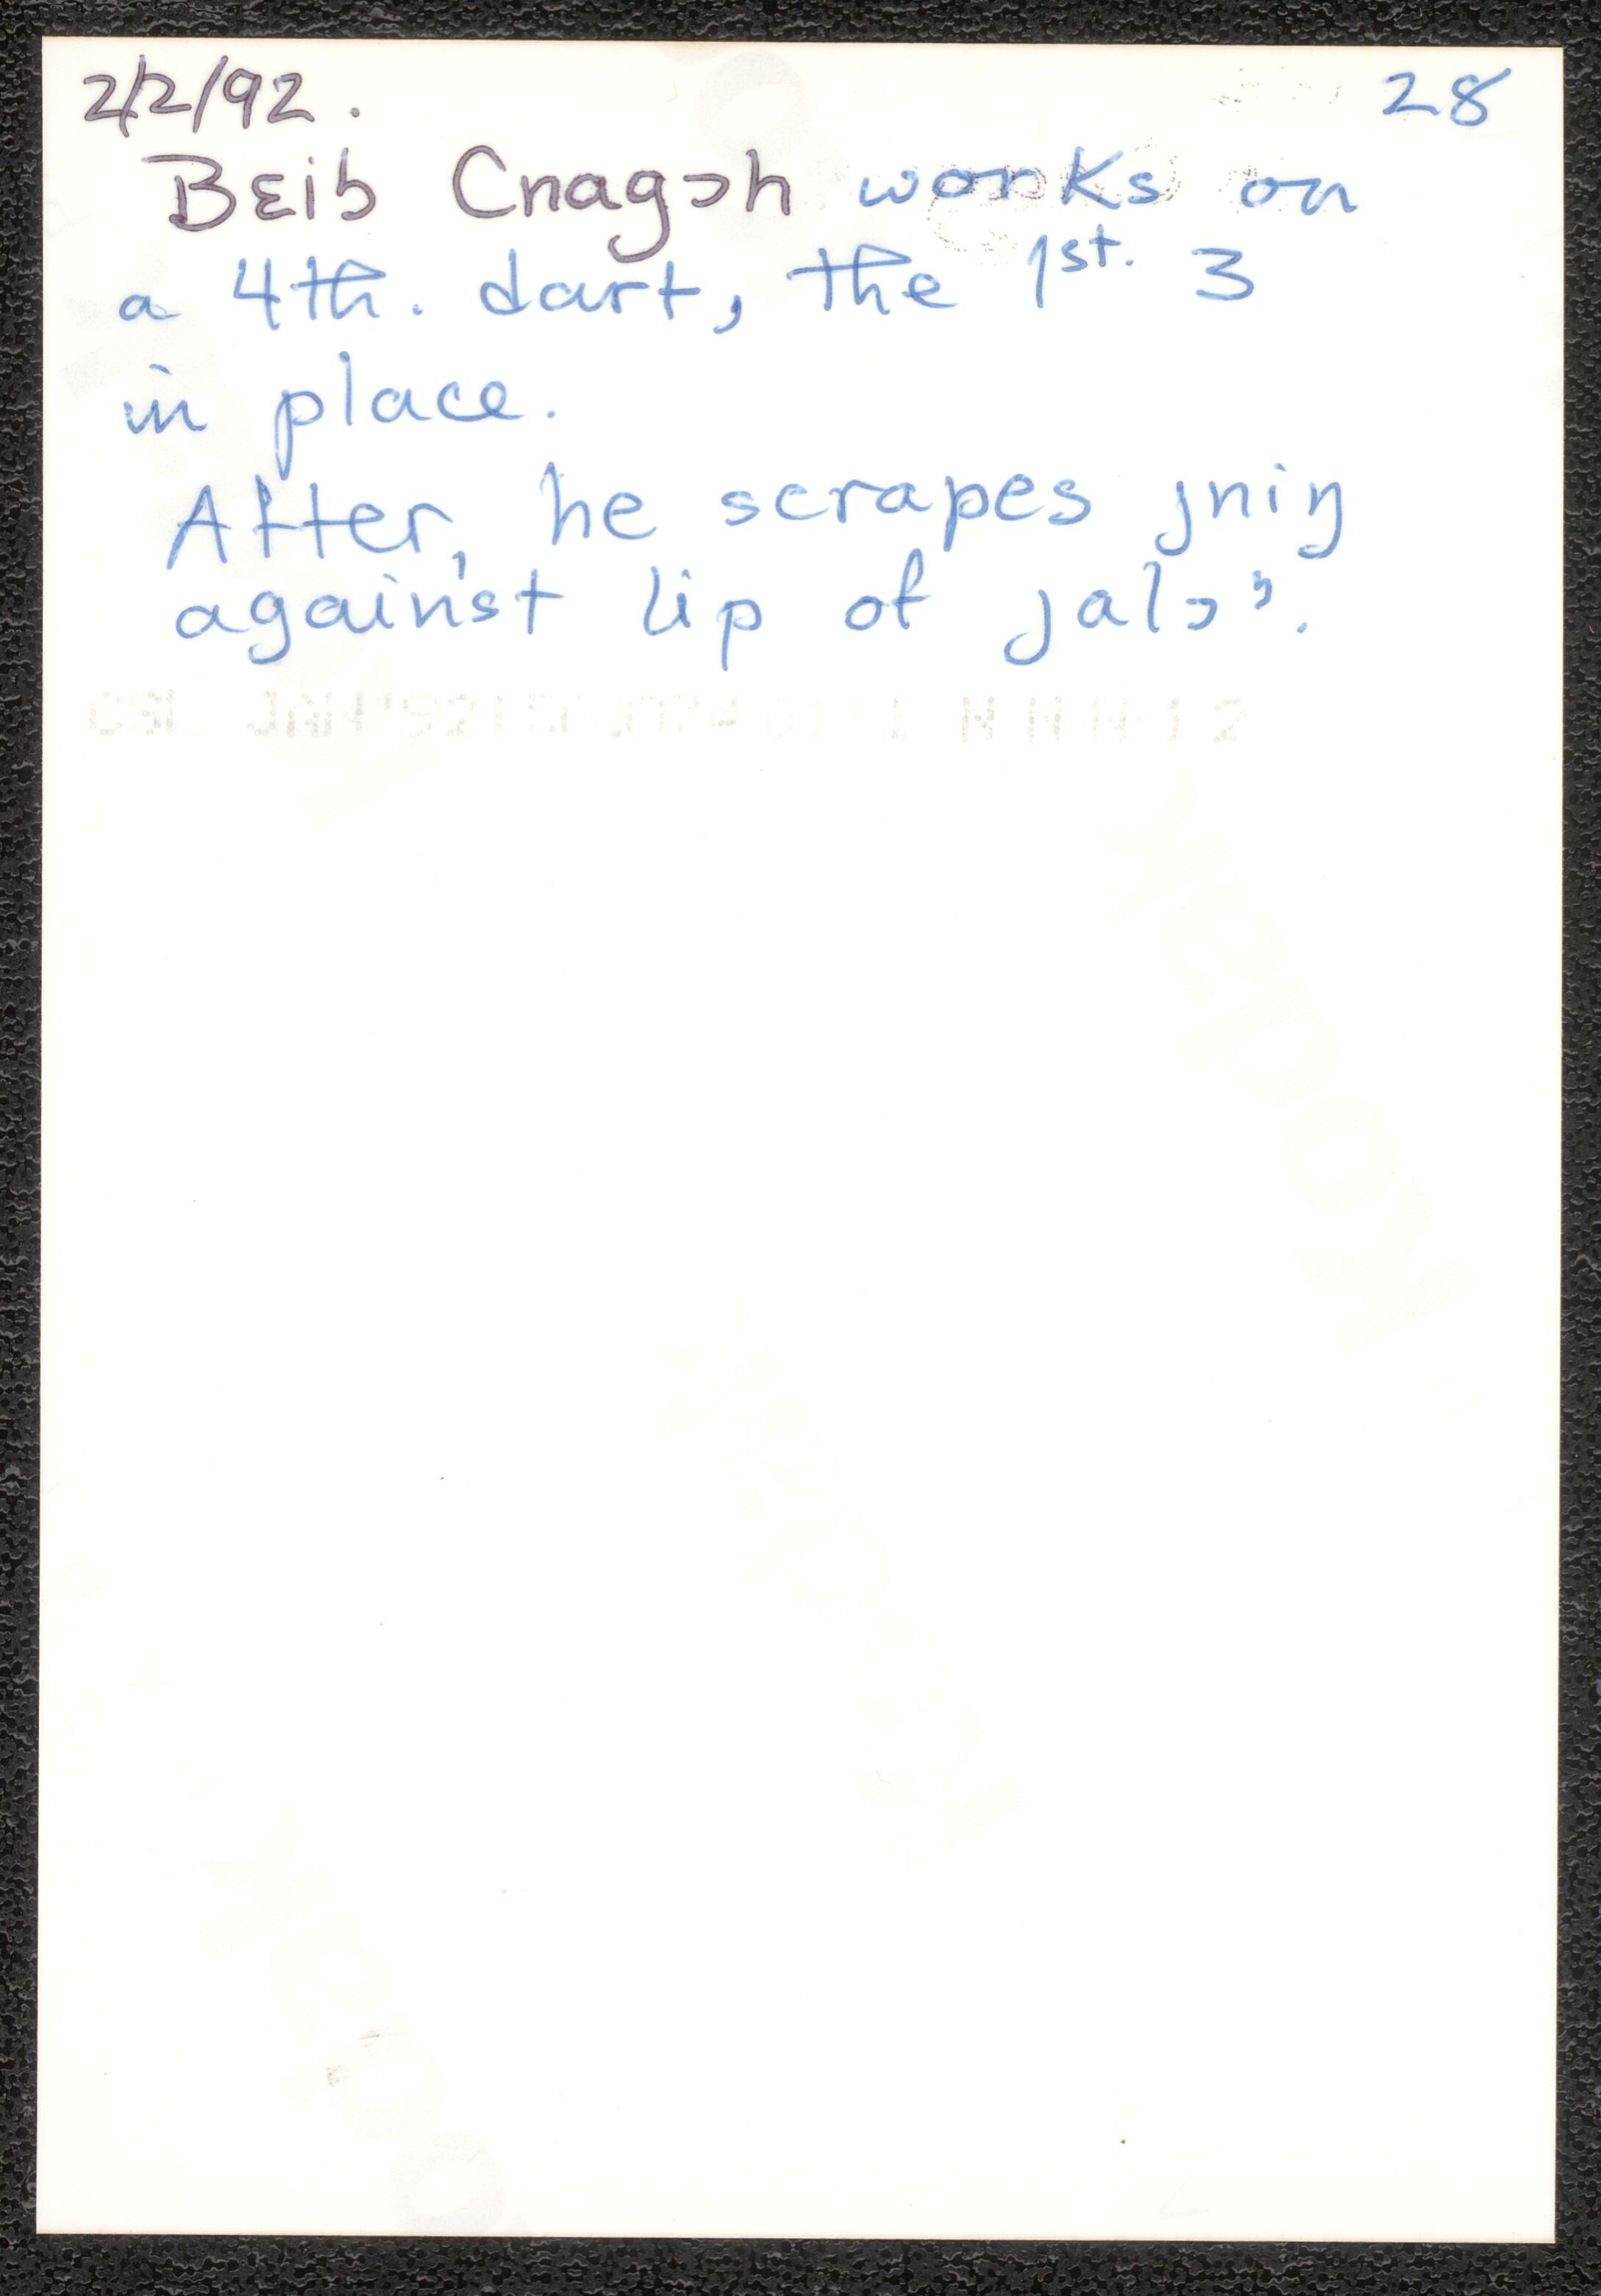 2/2/92. 28
Bɛiɓ Cnagɔh works on
a 4th. dart, the 1st. 3
in place.
After, he scrapes jniŋ
against lip of jalɔʾʾ.